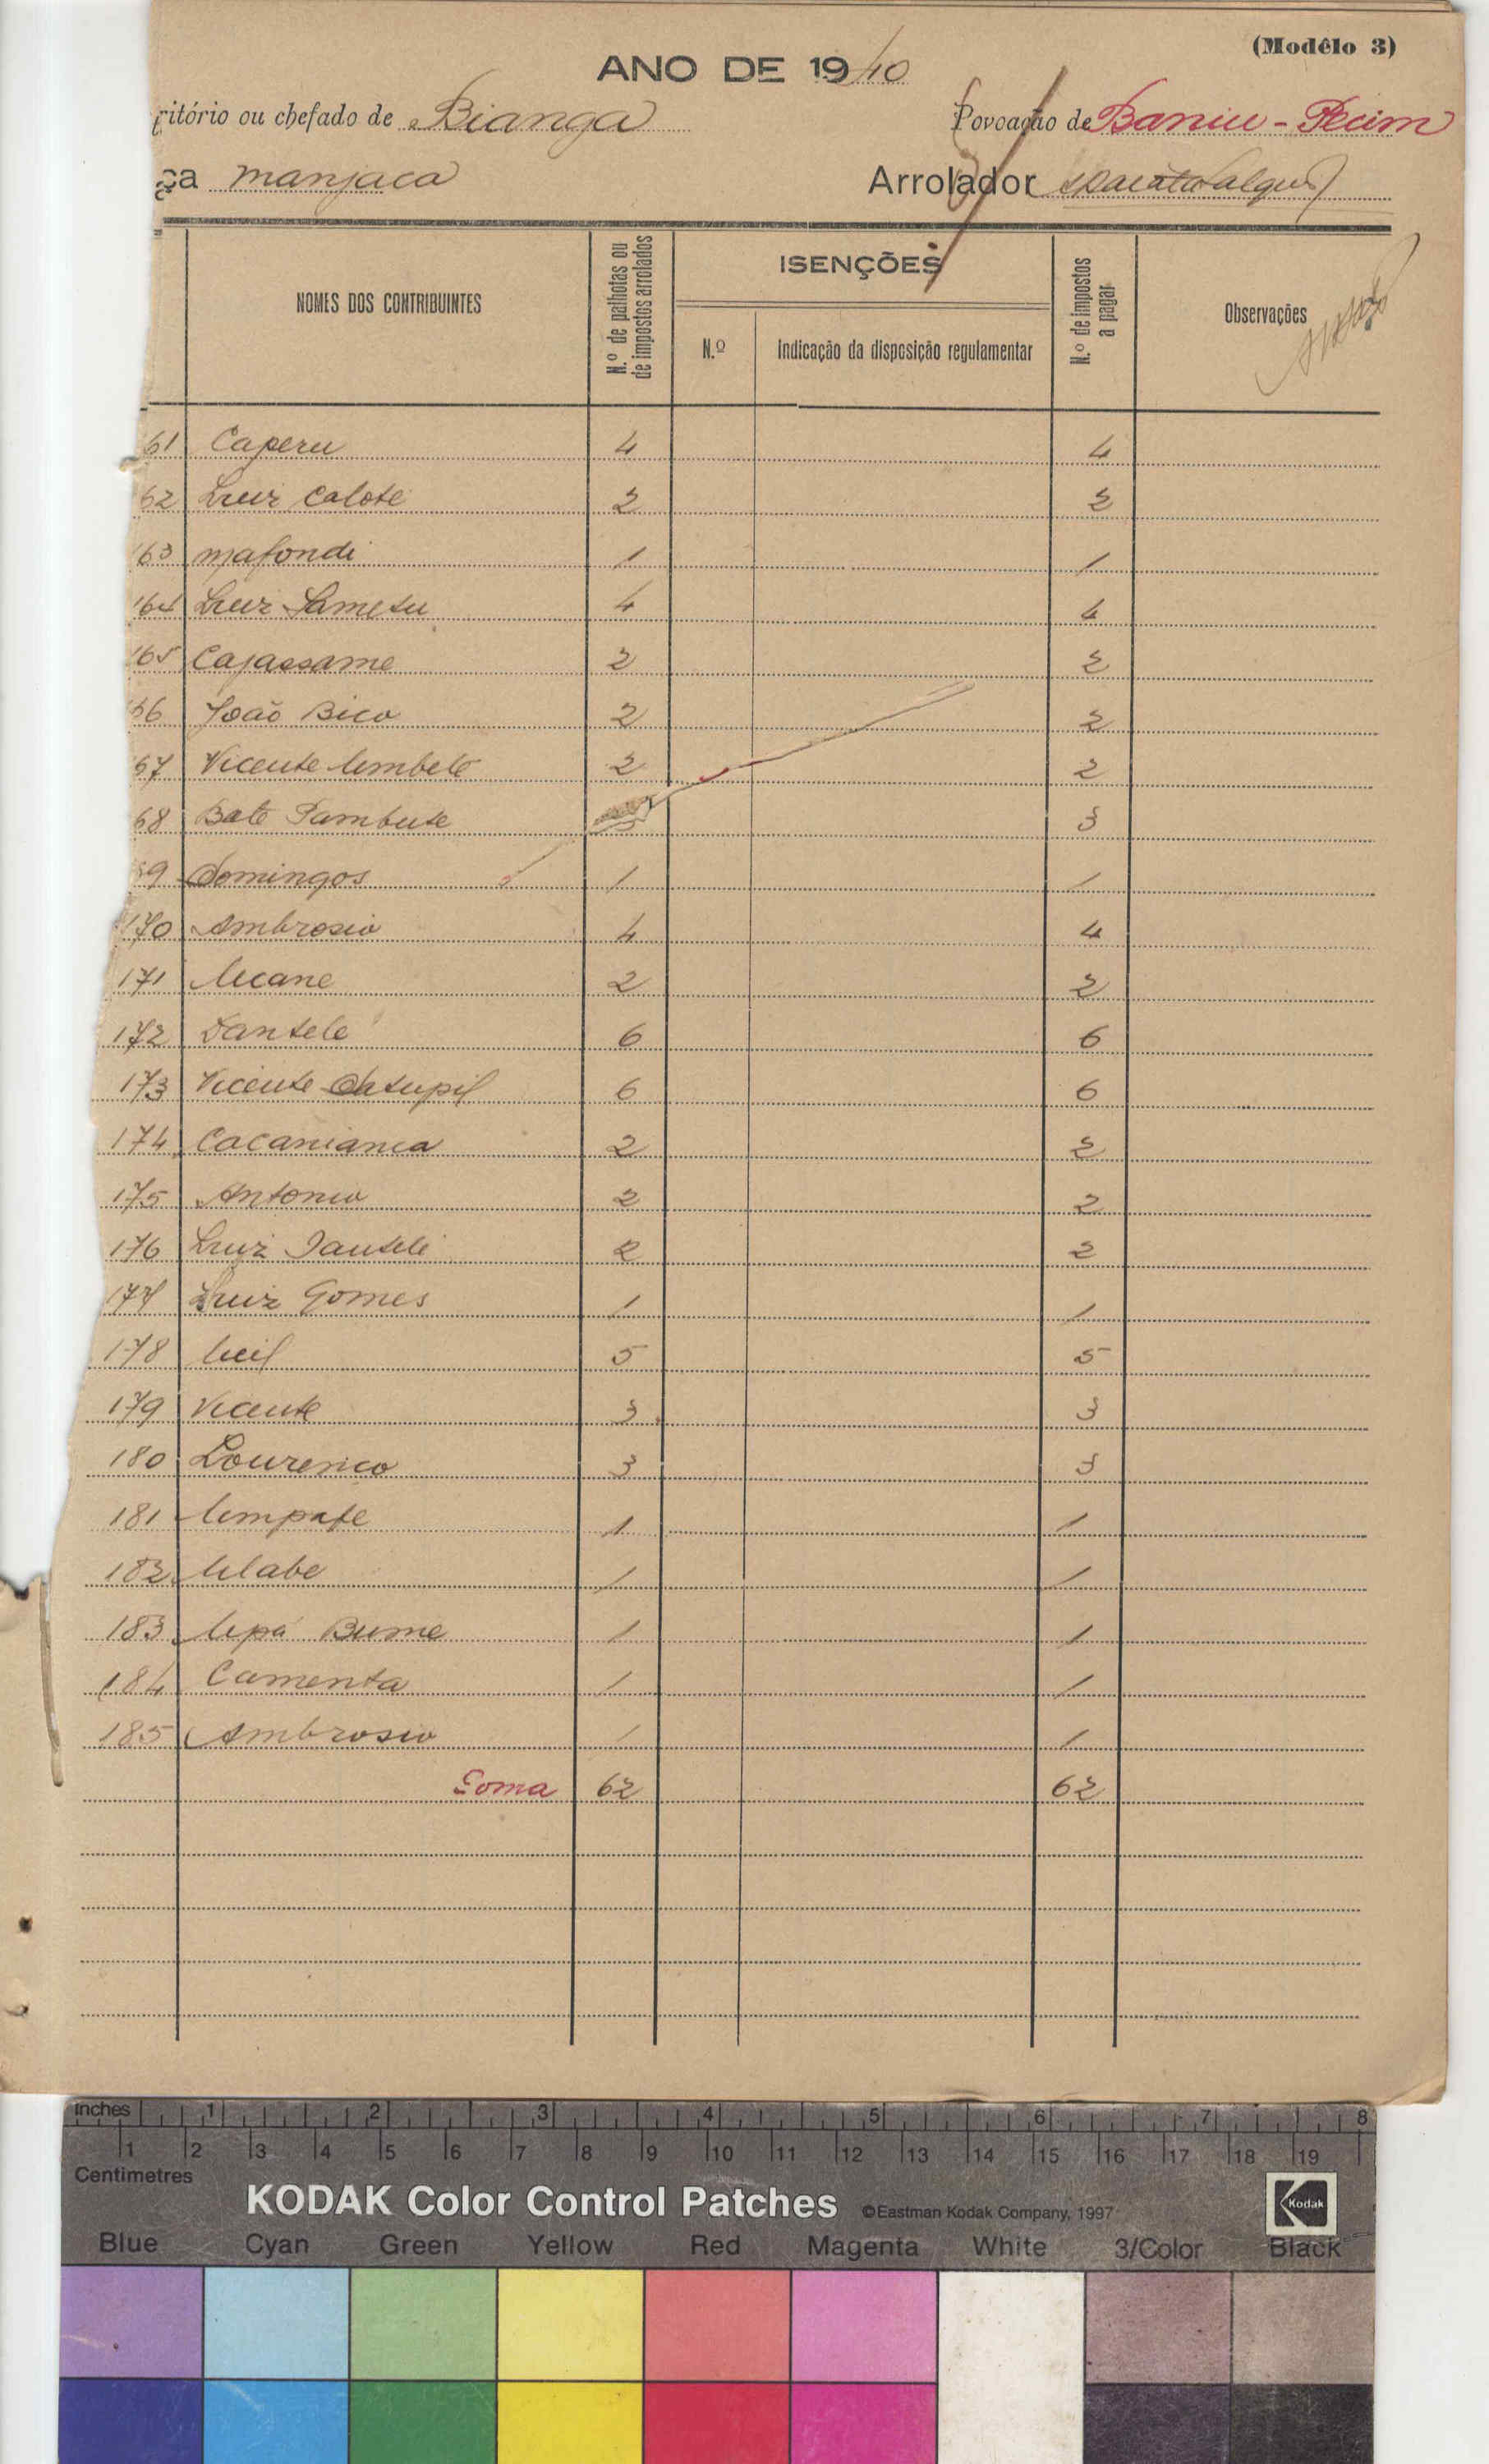 (Modêlo 3)
ANO DE 1940
ritório ou chefado de Bianga Povoação de Baniu - Pecim
ça manjaca Arrolador
NOMES DOS CONTRIBUINTES N.º de palhotas ou de impostos arrolados ISENÇÕES N.º Indicação da disposição regulamentar N.º de impostos a pagar Observações
61 Caperu 4 4
62 Luiz Calote 2 2
163 mafondi 1 1
164 Luiz Sametu 4 4
165 Cajassame 2 2
66 João Bico 2 2
67 Vicente Umbele 2 2
68 Bate Pambute 3 3
69 Domingos 1 1
170 Ambrosio 4 4
171 Ucane 2 2
172 Dantele 6 6
173 Vicente Chtupil 6 6
174 Cacanianca 2 2
175 Antonio 2 2
176 Luiz Dantele 2 2
177 Luiz Gomes 1 1
178 Ucil 5 5
179 Vicente 3 3
180 Lourenco 3 3
181 Umpafe 1 1
182 Ulabe 1 1
183 Upa Bume 1 1
184 Camenta 1 1
185 Ambrosio 1 1
Soma 62 62
inches 1 2 3 4 5 6 7 8
1 2 3 4 5 6 7 8 9 10 11 12 13 14 15 16 17 18 19
Centimetres
KODAK Color Control Patches ©Eastman Kodak Company, 1997 Kodak
Blue Cyan Green Yellow Red Magenta White 3/Color Black